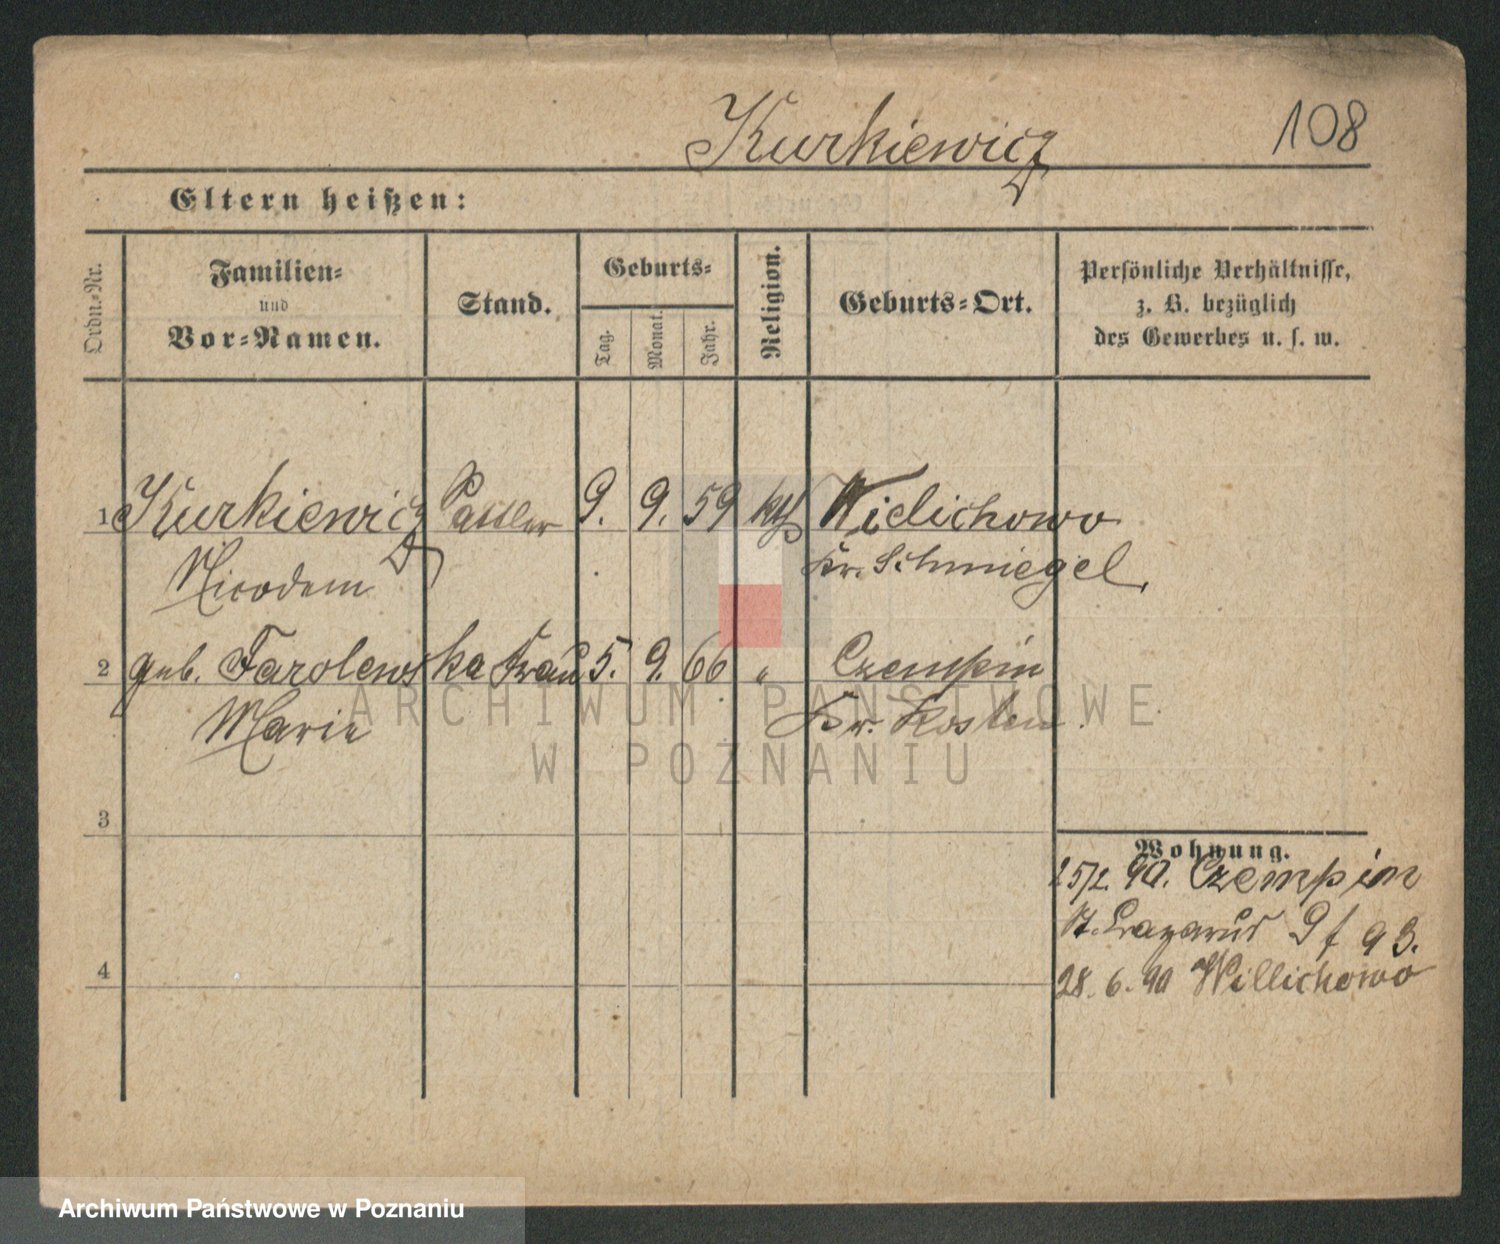 Kurkiewicz
108
Eltern heißen:
Ordn.-Nr.
Familien-
und
Vor-Namen.
Stand.
Geburts-
Tag.
Monat.
Jahr.
Religion.
Geburts-Ort.
Persönliche Verhältnisse,
z. B. bezüglich
des Gewerbes u. s. w.
1 Kurkiewicz Sattler 9. 9. 59 kth Wielichowo
Nicodem Kr. Schmiegel.
2 geb. Jarolewska Frau 5. 9. 66 " Czempin
Marie Kr. Kosten.
3
4
Wohnung.
25/2. 90. Czempin
St. Lazarus 9f 93.
28. 6. 90 Willichowo
ARCHIWUM PAŃSTWOWE
W POZNANIU
Archiwum Państwowe w Poznaniu